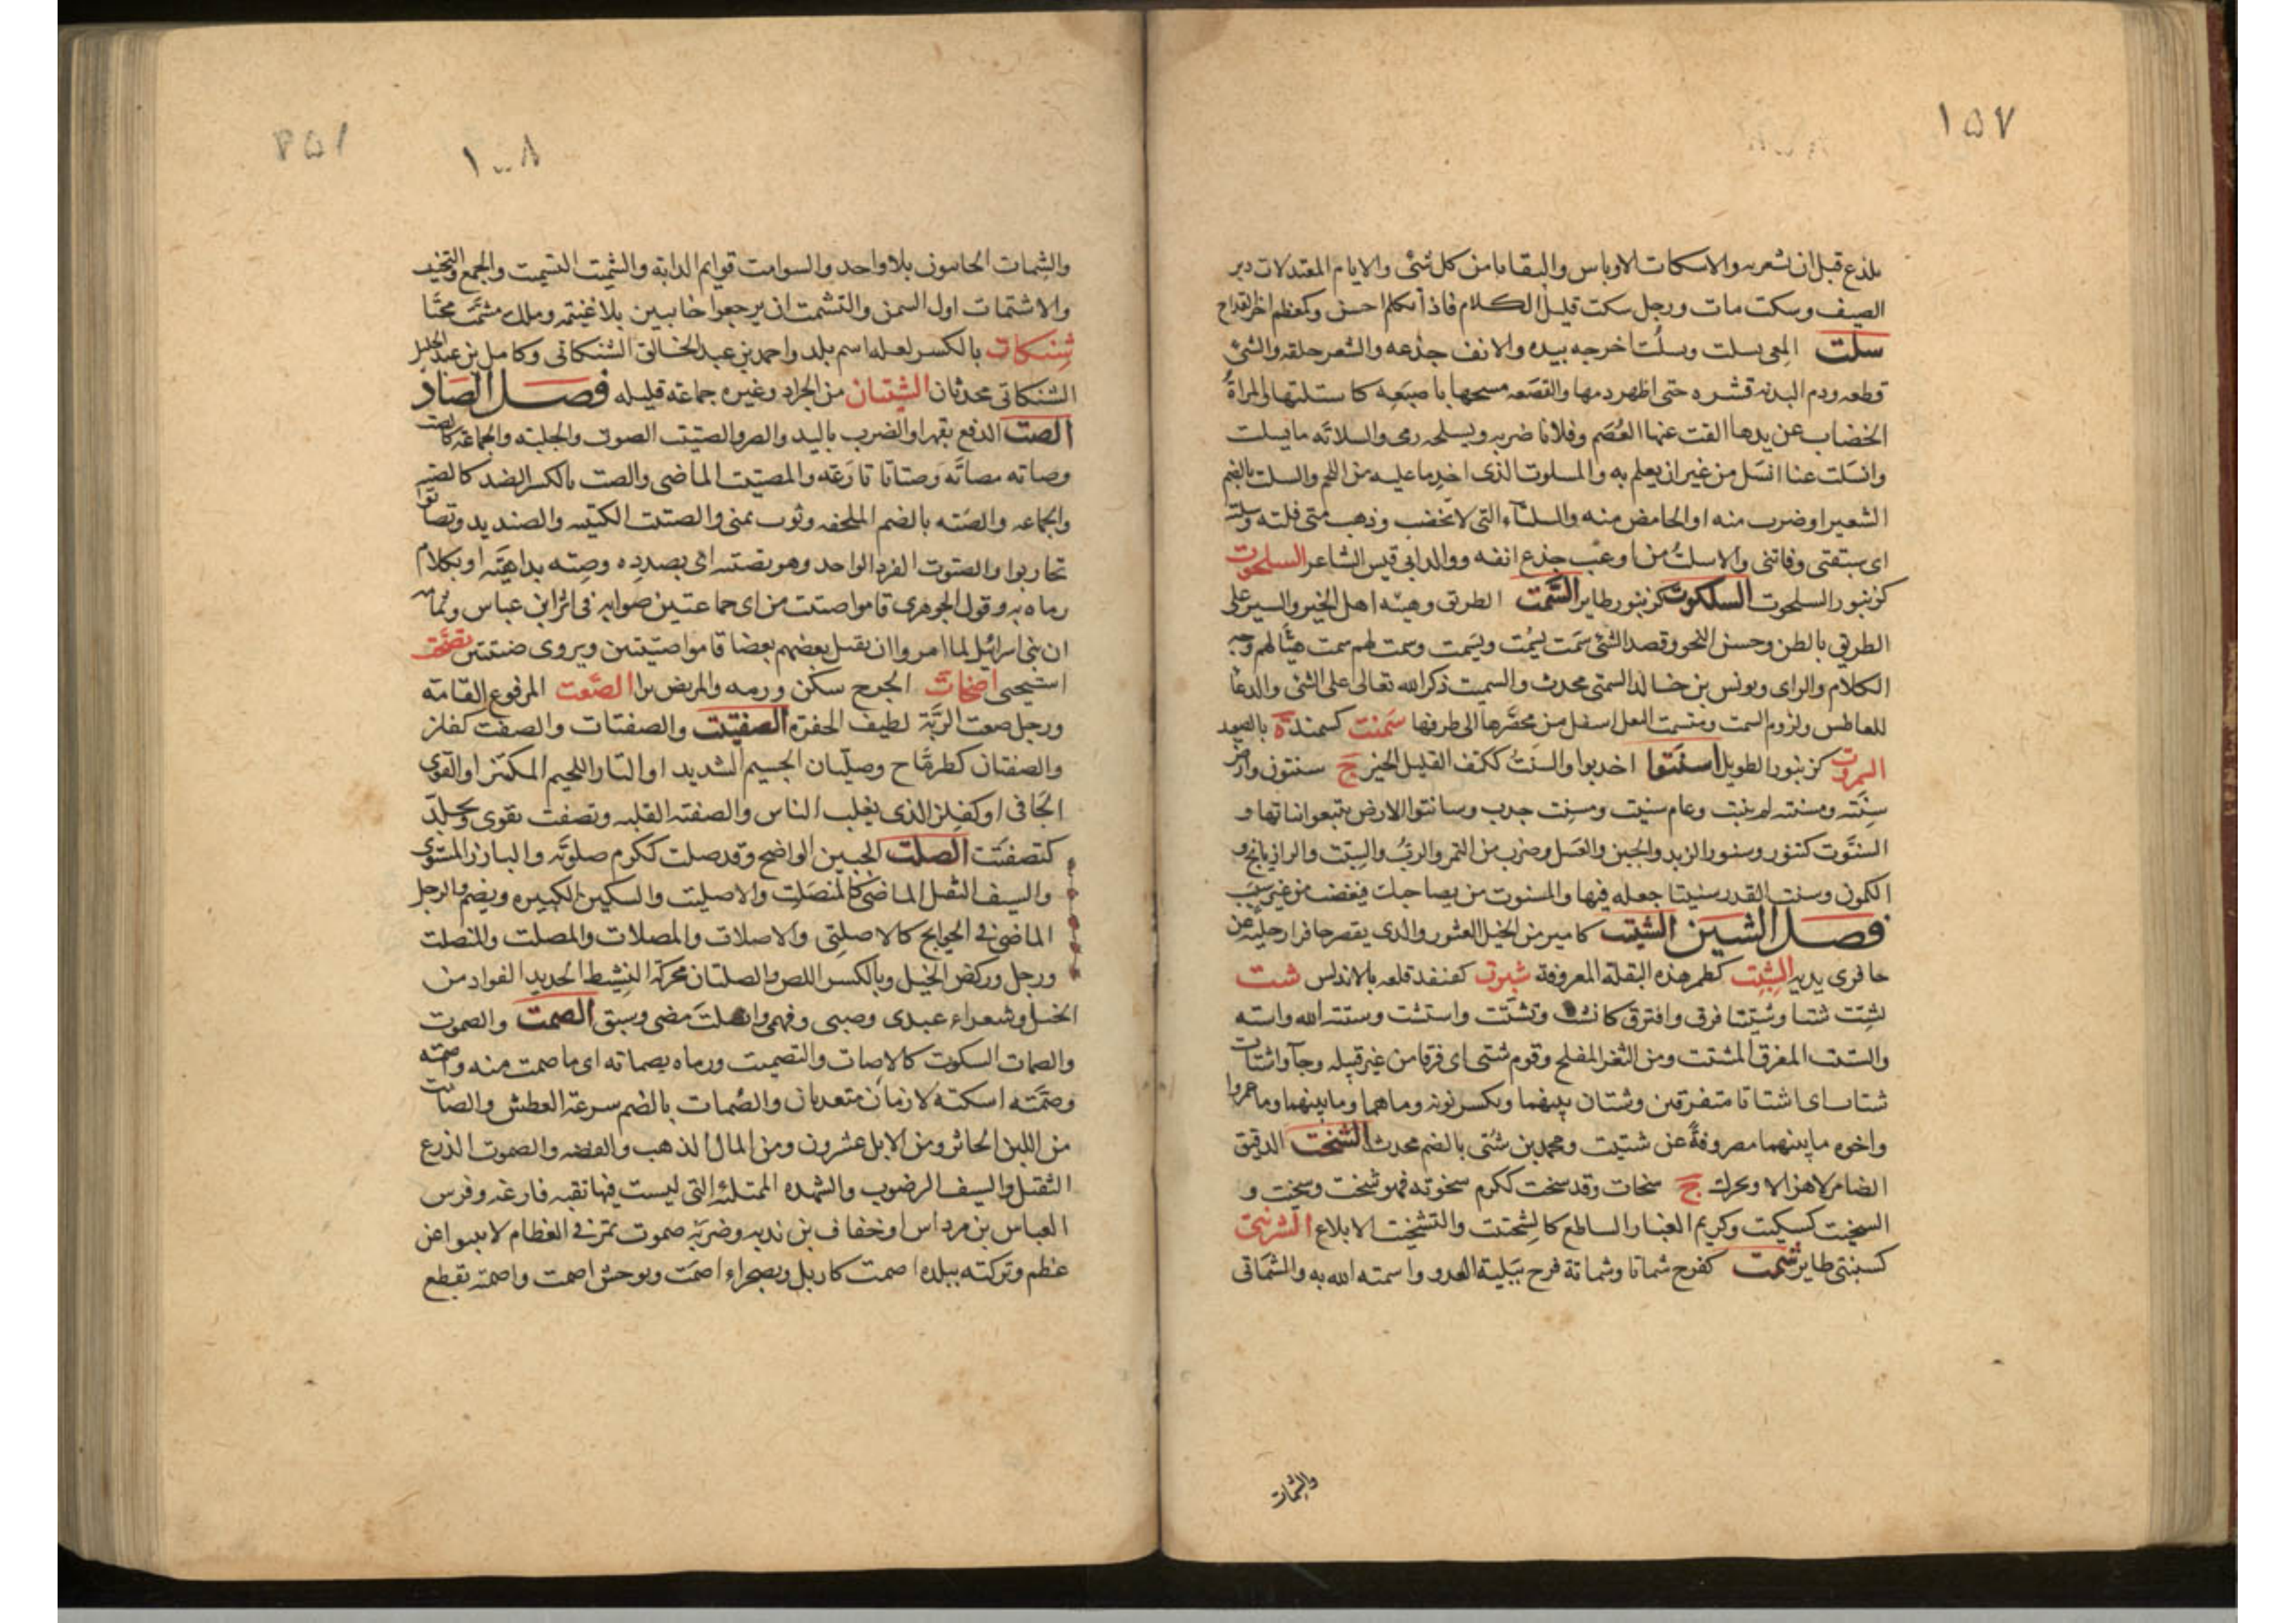 ١٥٧
بلذع قبل ان تشعر به والاسكات الاوباش والبقايا من كل شئ والايام المعتدلات دبر
الصيف وسكت مات ورجل سكت قليل الكلام فاذا تكلم احسن وكمعظم اخر القداح
سلت المعى يسلت ويسلت اخرجه بيده والانف جدعه والشعر حلقه والشئ
قطعه ودم البدنه قشره حتى اظهر دمها والقصعه مسحها باصبعه كاستلتها والمراة
الخضاب عن يدها القت عنها العصم وفلانا ضربه وبسلحه رمى والسلاته ما يسلت
وانسلت عنا انسل من غير ان يعلم به والمسلوت الذى اخذ ما عليه من اللحم والسلت بالضم
الشعير او ضرب منه او الحامض منه والسلتاء التى لا تختضب وذهب منى فلته وسلته
اى سبقنى وفاتنى والاسلت من اوعب جدع انفه ووالد ابى قيس الشاعر السلحوت
كزنبور السلحوت السلكوت كزنبور طاير السمت الطريق وهيئه اهل الخير والسير على
الطريق بالظن وحسن النحو وقصد الشئ سمت يسمت ويسمت وسمت لهم سمت هيئا لهم وجه
الكلام والراى ويونس بن خالد السمتى محدث والتسميت ذكر الله تعالى على الشئ والدعا
للعاطس ولزوم السمت ومتسمت النعل اسفل من مخصرها الى طرفها سمنت كسمندة بالصعيد
السروت كزنبور الطويل اسنتوا اجدبوا والسنت ككتف القليل الخير ج سنتون وارض
سنته ومسنته لم تنبت وعام سنيت ومسنت جدب وسانتوا الارض تتبعوا نباتها و
السنوت كتنور وسنور الزبد والجبن والعسل وضرب من التمر والرب والسبت والرازيانج و
الكمون وسنت القدر تسنيتا جعله فيها والمسنوت من يصاحبك فيغضب من غير سبب
فصل الشين الشئيت كامير من الخيل العثور والذى يقصر حافرا رجليه عن
حافرى يديه الشبت كطمر هذه البقلة المعروفة شبرت كقنفذ قلعه بالاندلس شت
يشت شتا وشتيتا فرق وافترق كانشت وتشتت واستشت وشتته الله واشته
والشتت المفرق المشتت ومن الثغر المفلج وقوم شتى اى فرقا من غير قبيله وجاوا اشتات
شتات اى اشتاتا متفرقين وشتان بينهما وبكسر نونه وما هما وما بينهما وما عمروا
واخوه ما بينهما مصروفة عن شتيت ومحمد بن شتى بالضم محدث الشخت الدقيق
الضامر لا هزالا ويحرك ج شخات وقد شخت ككرم شخوته فهو شخت وشخيت و
الشخيت كسكيت وكريم الغبار الساطع كالشختيت والتشخيت الابلاغ الشرنتى
كسبنتى طاير شمت كفرح شماتا وشماتة فرح ببلية العدو واشمته الله به والشماتى
والشمات
١٠٠٨
والشمات الخايبون بلا واحد والشوامت قوايم الدابة والتشميت التسميت والجمع والتخييب
والاشتمات اول السمن والتشمت ان يرجعوا خايبين بلا غنيمه وملك مشمت محيا
شنكات بالكسر لعله اسم بلد واحمد بن عبد الخالق الشنكاتى وكامل بن عبد الجليل
الشنكاتى محدثان الشيتان من الجراد وغيره جماعة قليله فصل الصاد
الصت الدفع بقهر او الضرب باليد والصر والصتيت الصوت والجلبه والجماعه كالصت
وصاته مصاته وصتاتا نازعه والمصتيت الماضى والصت بالكسر الضد كالصته
والجماعه والصته بالضم الملحفه وثوب يمنى والصتت الكتيبه والصنديد وتصاتوا
تحاربوا والصتوت الفرد الواحد وهو بصتته اى بصدده وصته بداهية او بكلام
رماه به وقول الجوهرى قاموا صتيت من اى جماعتين صوابه فى اثر ابن عباس وتمامه
ان بنى اسرائيل لما امروا ان يقتل بعضهم بعضا قاموا صتيتين ويروى صتتين تصخت
استحيى اصخات الجرح سكن ورمه والمريض برا الصعت المرفوع القامة
ورجل صعت الربة لطيف الجفرة الصفتيت والصفتات والصفت كفلز
والصفتان كطرماح وصليان الجسيم الشديد او التار اللحيم المكتنز او القوى
الجافى او كفلز الذى يغلب الناس والصفته الغلبه وتصفت تقوى وتجلد
كتصفتت الصلت الجبين الواضح وقد صلت ككرم صلوته والبارز المستوى
والسيف الثقيل الماضى كالمنصلت والاصليت والسكين الكبيره ويضم والرجل
الماضى فى الحوايج كالاصلتى والاصلات والمصلات والمصلت والمنصلت
ورجل وركض الخيل وبالكسر اللص والصلتان محركة النشيط الحديد الفواد من
الخيل وشعراء عبدى وضبى وفهمى وانصلت مضى وسبق الصمت والصموت
والصمات السكوت كالاصمات والتصميت ورماه بصماته اى ما صمت منه واصمته
وصمته اسكته لازمان متعديان والصمات بالضم سرعة العطش والصامت
من اللبن الخاثر ومن الابل عشرون ومن المال الذهب والفضه والصموت الدرع
الثقيل والسيف الرسوب والشهده الممتلئه التى ليست فيها ثقبه فارغه وفرس
العباس بن مرداس او خفاف بن ندبه وضربة صموت تمر فى العظام لا تنبو عن
عظم وتركته ببلدة اصمت كاربل وبصحراء اصمت وبوحش اصمت واصمة بقطع